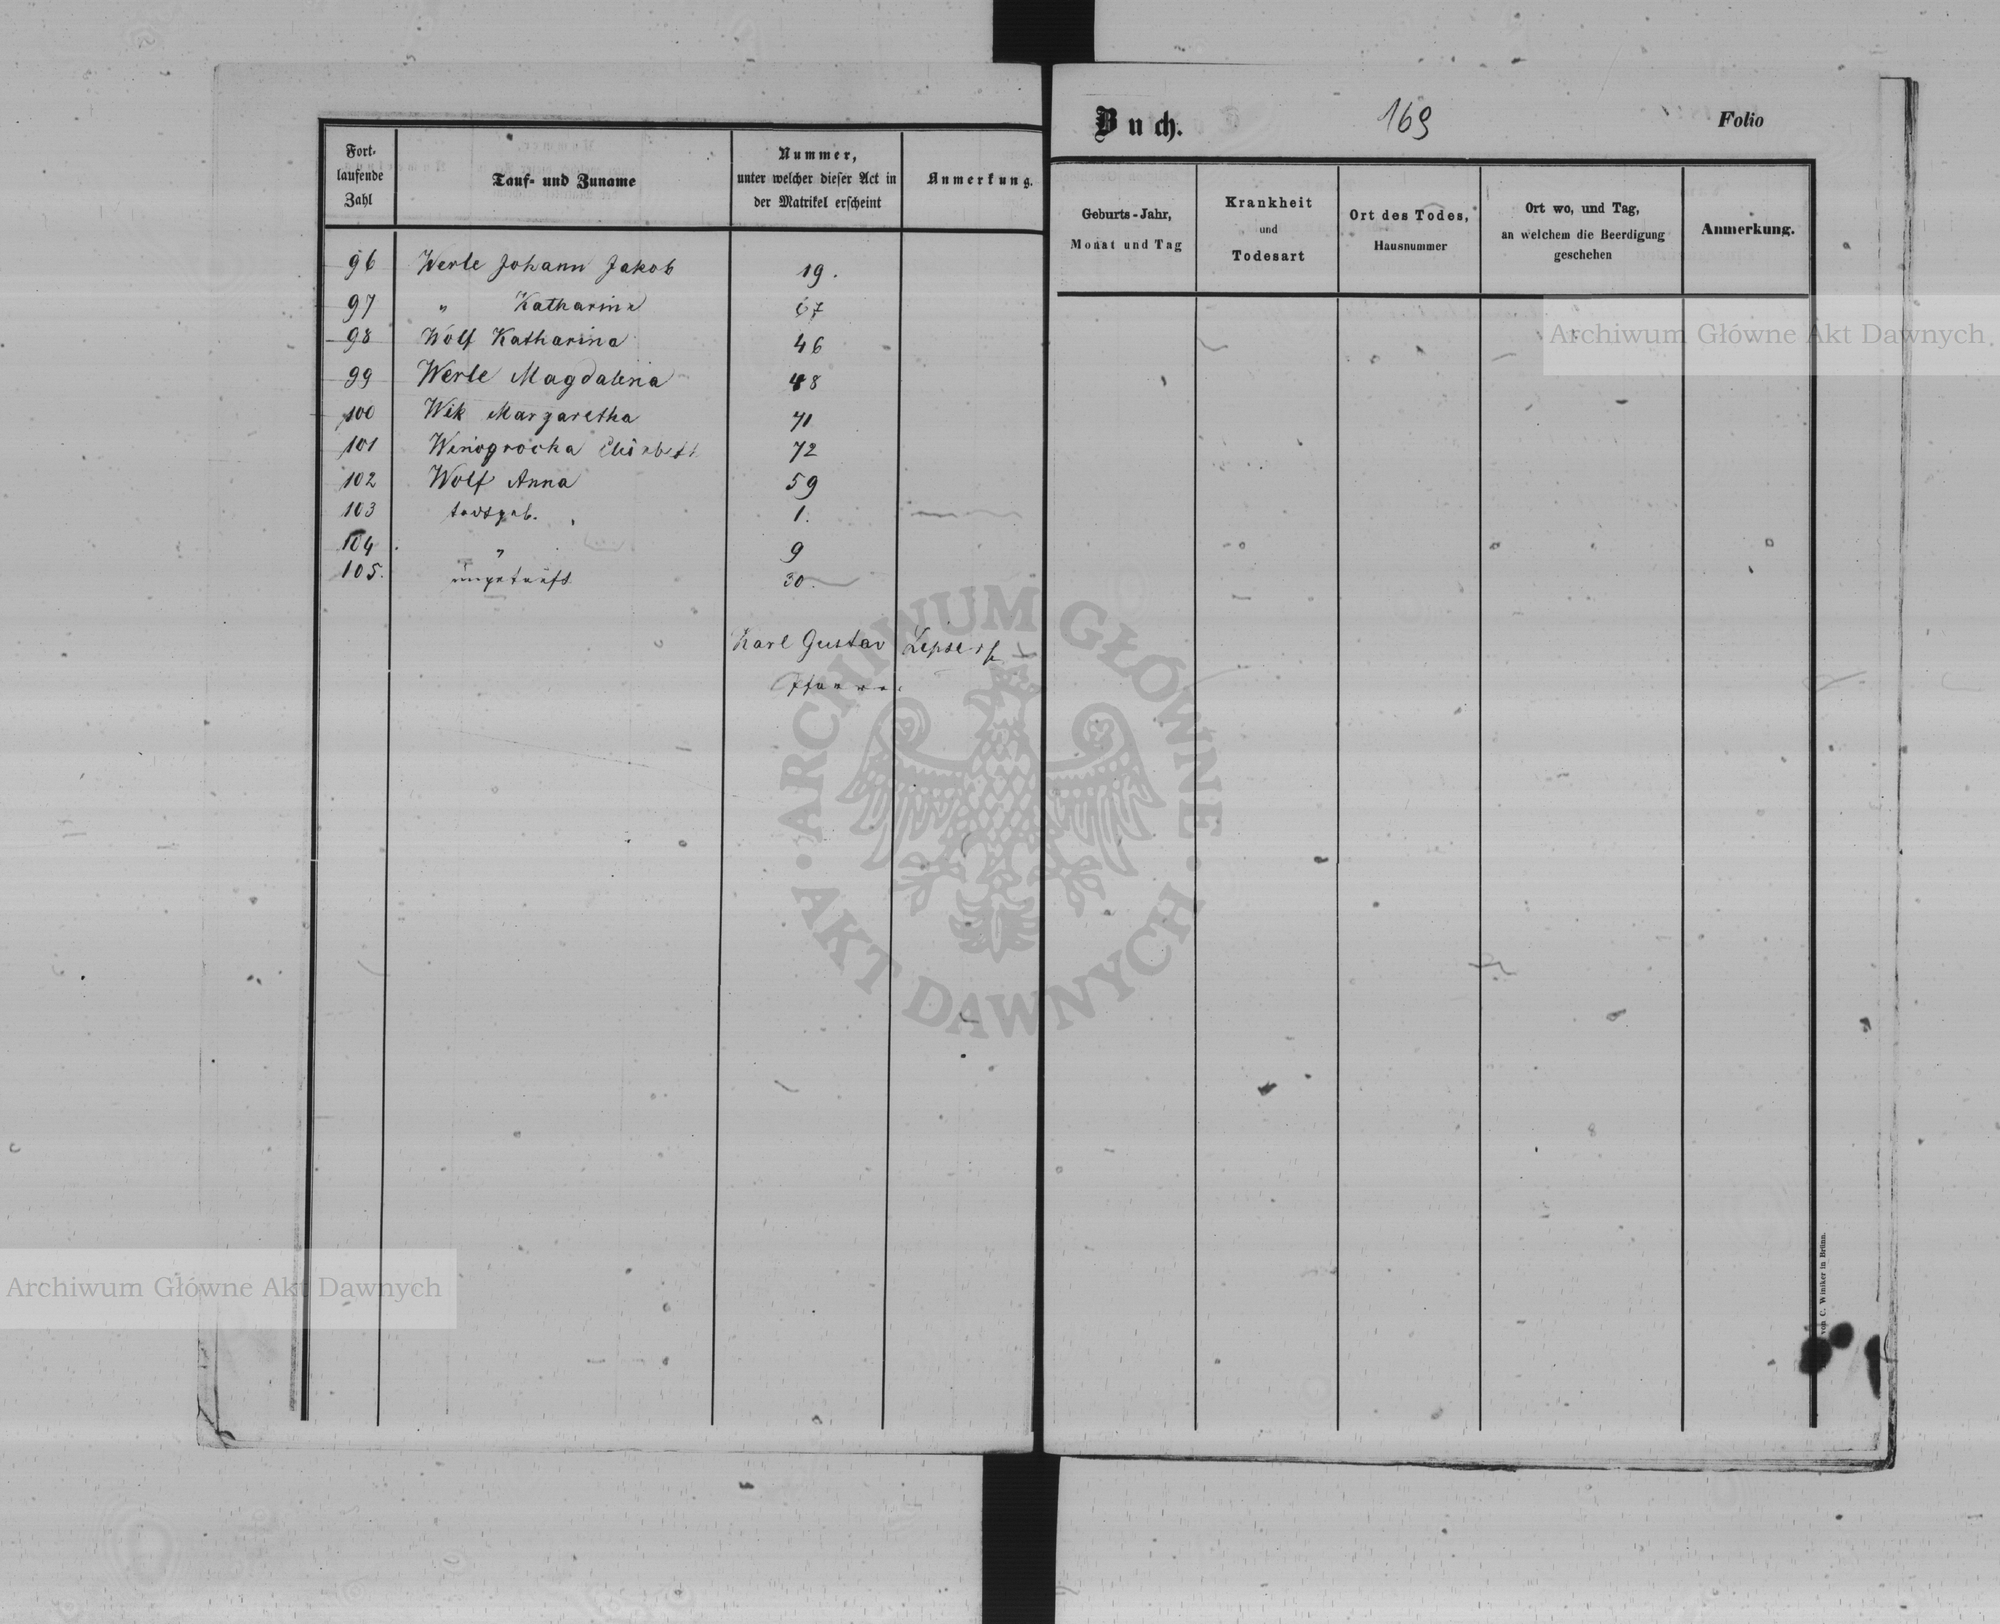 Fort-
laufende
Zahl
Tauf- und Zuname
Nummer,
unter welcher dieser Act in
der Matrikel erscheint
Anmerkung.
96 Werle Johann Jakob 19.
97 " Katharina 67
98 Wolf Katharina 46
99 Werle Magdalena 48
100 Wik Margaretha 71
101 Winogrocka Elisabeth 72
102 Wolf Anna 59
103 todtgeb. 1.
104. " 9
105. ungetauft 30.
Karl Gustav
Pfarrer
Buch.
169
Folio
Geburts-Jahr,
Monat und Tag
Krankheit
und
Todesart
Ort des Todes,
Hausnummer
Ort wo, und Tag,
an welchem die Beerdigung
geschehen
Anmerkung.
von C. Winiker in Brünn.
Archiwum Główne Akt Dawnych
ARCHIWUM GŁÓWNE · AKT DAWNYCH ·
Archiwum Główne Akt Dawnych